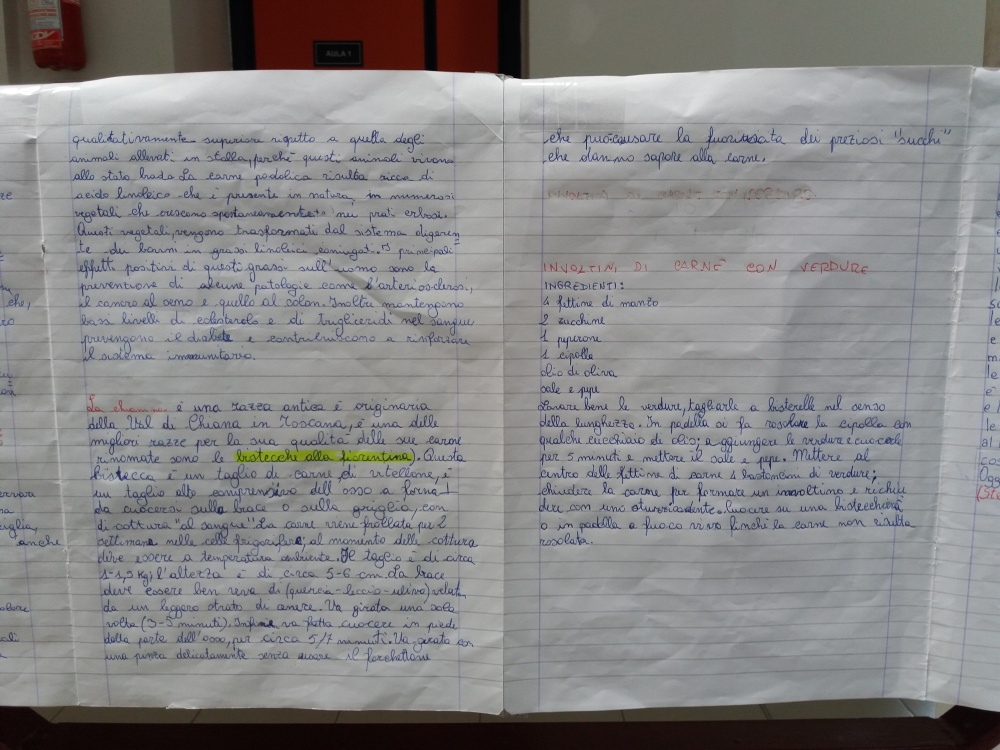 AULA 1
qualitativamente superiore rispetto a quella degli
animali allevati in stalla, perché questi animali vivono
allo stato brado. La carne podolica risulta ricca di
acido linoleico che è presente in natura, in numerosi
vegetali che crescono spontaneamente nei prati erbosi.
Questi vegetali, vengono trasformati dal sistema digeren
te dei bovini in grassi linoleici coniugati. I principali
effetti positivi di questi grassi sull'uomo sono la
prevenzione di alcune patologie come l'arteriosclerosi,
il cancro al seno e quello al colon. Inoltri mantengono
bassi livelli di colesterolo e di trigliceridi nel sangue
prevengono il diabete e contribuiscono a rinforzare
il sistema immunitario.
La chianina è una razza antica è originaria
della Val di Chiana in Toscana, è una delle
migliori razze per la sua qualità delle sue carne
rinomate sono le bistecche alla fiorentina). Questa
bistecca è un taglio di carne di vitellone, è
un taglio alto comprensivo dell'osso a forma T
da cuocersi sulla brace o sulla griglia, con
di cottura "al sangue". La carne viene frollata per 2
settimane nelle celle frigorifere; al momento della cottura
deve essere a temperatura ambiente. Il taglio è di circa
1-1,5 kg; l'altezza è di circa 5-6 cm. La brace
deve essere ben viva di (quercia-leccio-ulivo) velata
da un leggero strato di cenere. Va girata una sola
volta (3-5 minuti). Infine va fatta cuocere in piedi
dalla parte dell'osso, per circa 5/7 minuti. Va girata con
una pinza delicatamente senza usare il forchettone
che può causare la fuoriuscita dei preziosi "succhi"
che danno sapore alla carne.
INVOLTINI DI CARNE CON VERDURE
INGREDIENTI:
4 fettine di manzo
2 zucchine
1 peperone
1 cipolla
olio di oliva
sale e pepe
Lavare beni le verdure, tagliarle a listerelle nel senso
della lunghezza. In padella si fa rosolare la cipolla con
qualche cucchiaio di olio; aggiungere le verdure e cuocerle
per 5 minuti e mettere il sale e pepe. Mettere al
centro delle fettine di carne 4 bastoncini di verdure;
chiudere la carne per formare un involtino e richiu
dere con uno stuzzicadente. Cuocere su una bistecchiera
o in padella a fuoco vivo finchi la carne non risulta
rosolata.